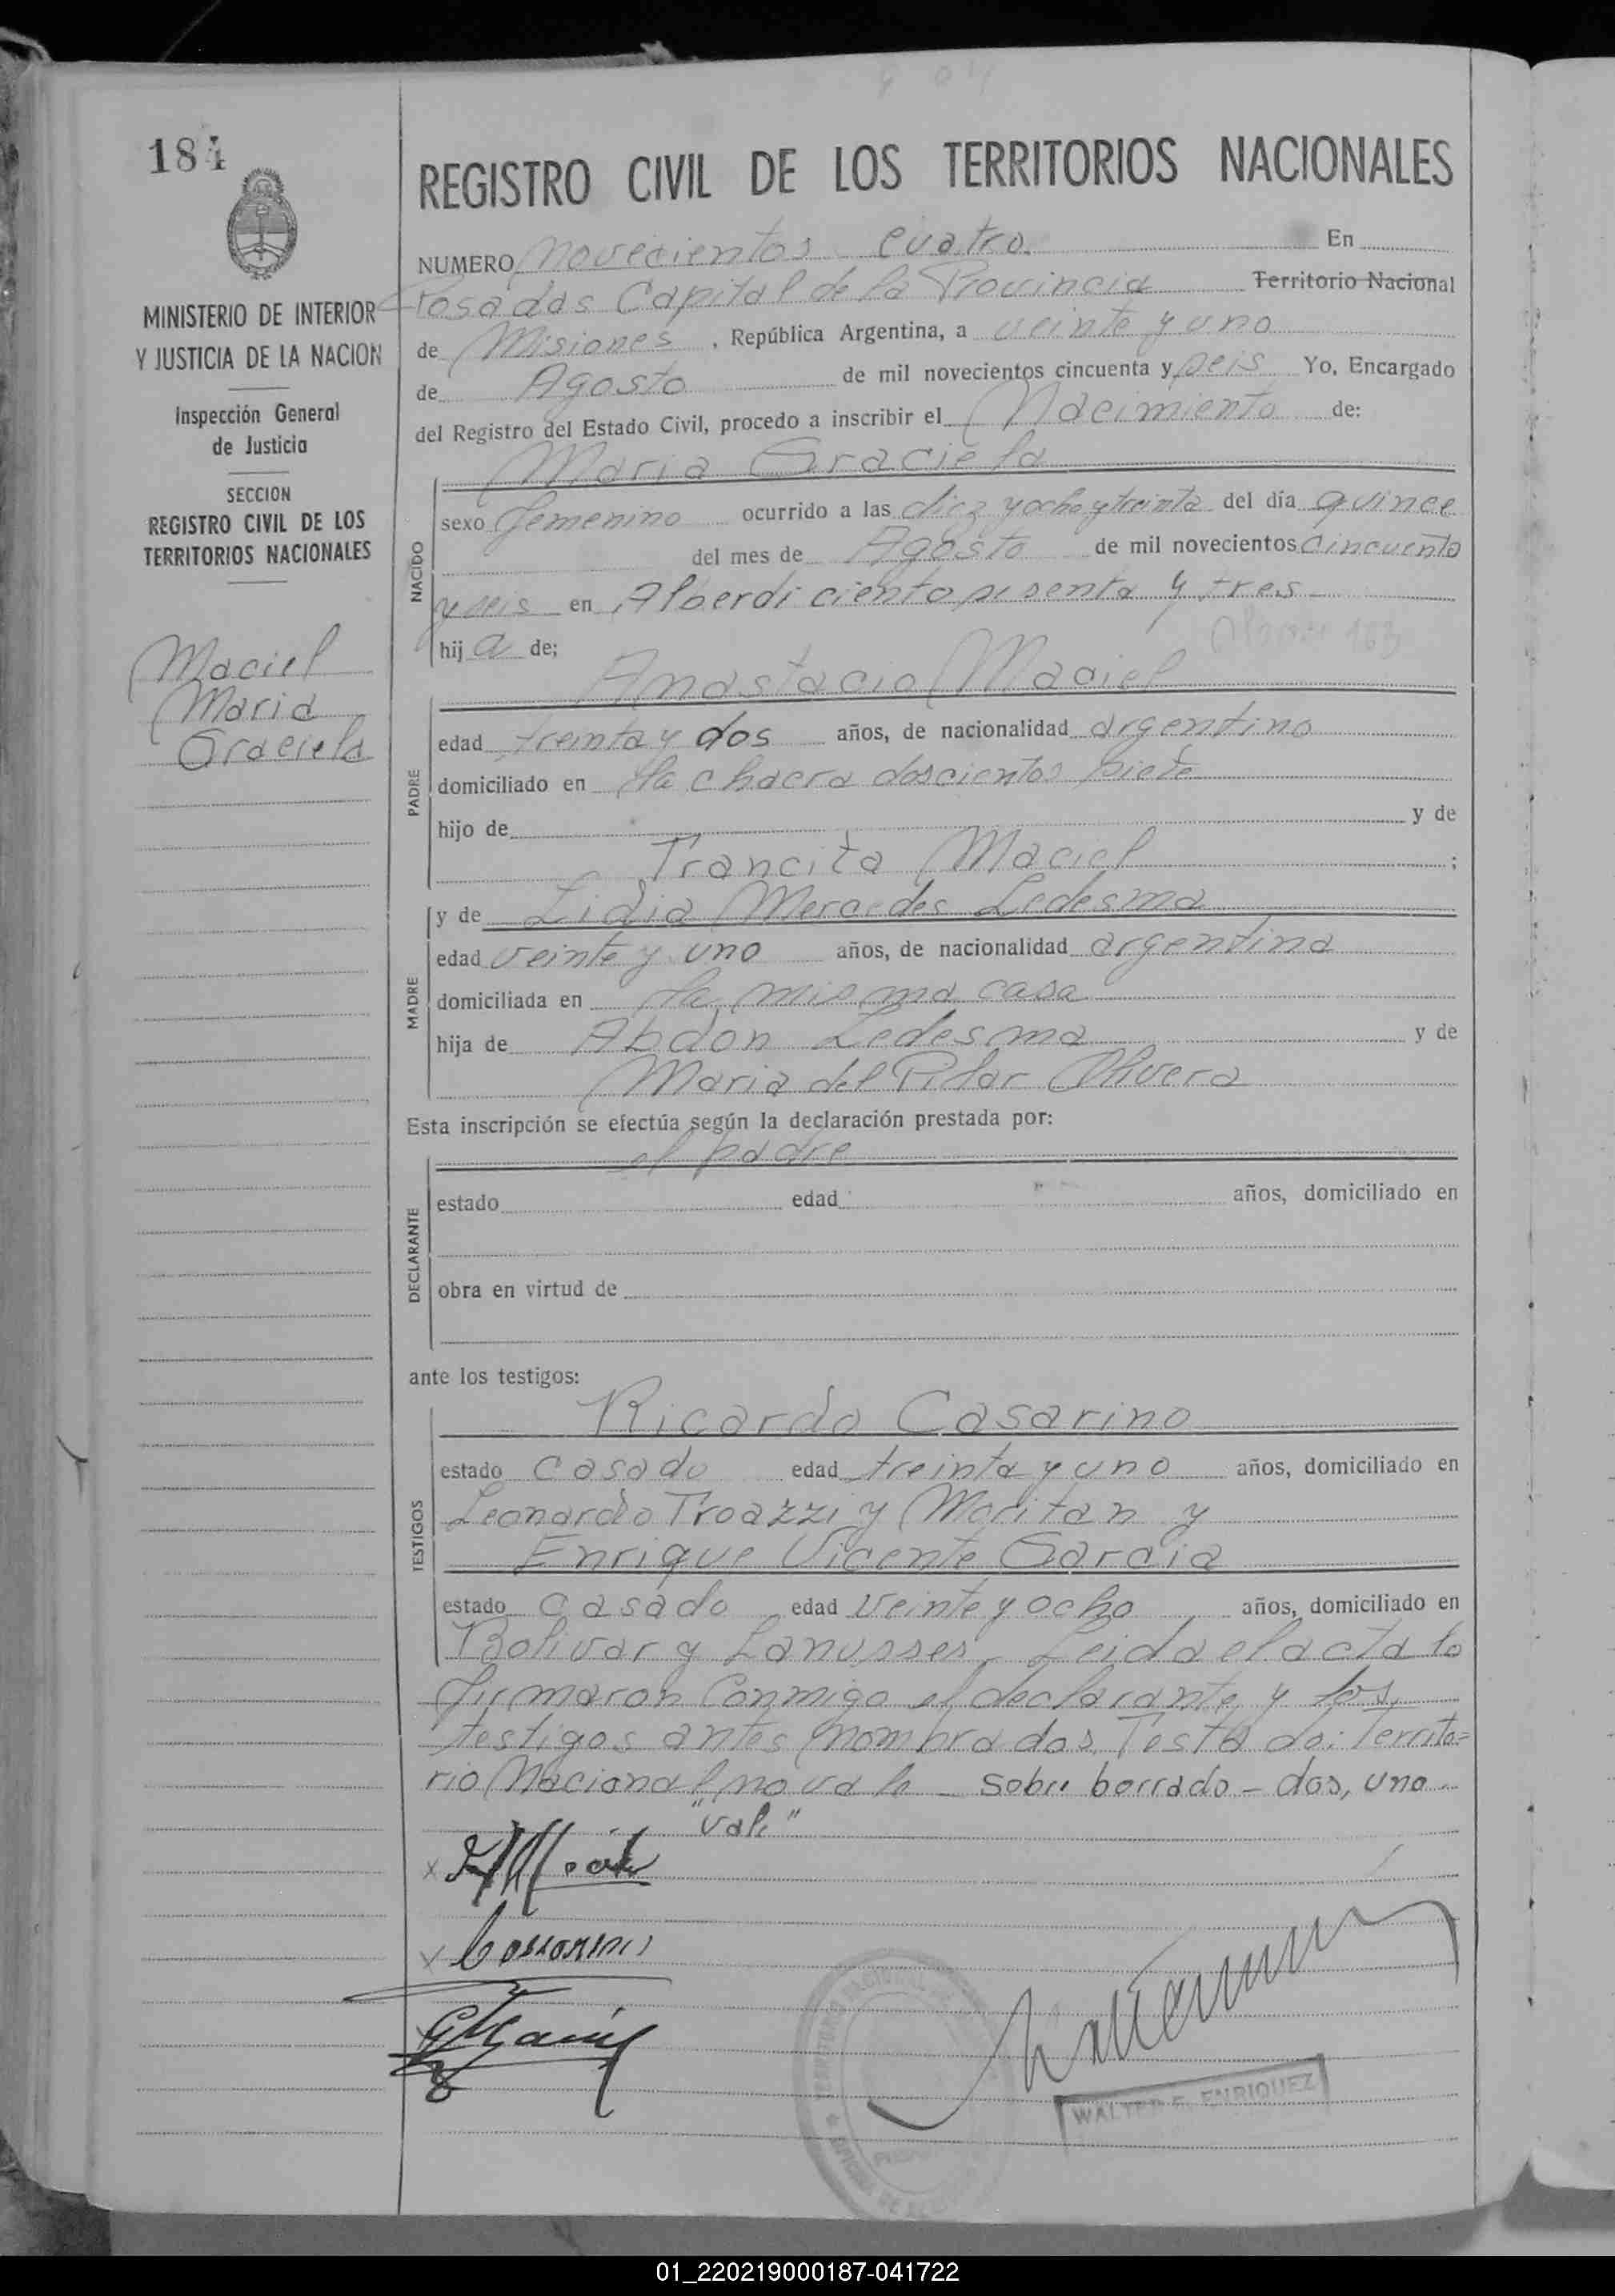 184
REGISTRO CIVIL DE LOS TERRITORIOS NACIONALES
MINISTERIO DE INTERIOR
Y JUSTICIA DE LA NACION
Inspección General
de Justicia
SECCION
REGISTRO CIVIL DE LOS
TERRITORIOS NACIONALES
Maciel
Maria
Graciela
NUMERO Novecientos cuatro. En
Posadas Capital de la Provincia Territorio Nacional
de Misiones, República Argentina, a veinte y uno
de Agosto de mil novecientos cincuenta y seis Yo, Encargado
del Registro del Estado Civil, procedo a inscribir el Nacimiento de:
Maria Graciela
NACIDO
sexo femenino ocurrido a las diez y ocho y treinta del día quince
del mes de Agosto de mil novecientos cincuenta
y seis en Alberdi ciento sesenta y tres
hija de;
Anastacio Maciel
PADRE
edad treinta y dos años, de nacionalidad argentino
domiciliado en la chacra doscientos siete
hijo de y de
Trancita Maciel ;
y de Lidia Mercedes Ledesma
MADRE
edad veinte y uno años, de nacionalidad argentina
domiciliada en la misma casa
hija de Abdon Ledesma y de
Maria del Pilar Olivera
Esta inscripción se efectúa según la declaración prestada por:
el padre
DECLARANTE
estado edad años, domiciliado en
obra en virtud de
ante los testigos:
Ricardo Casarino
TESTIGOS
estado casado edad treinta y uno años, domiciliado en
Leonardo Troazzi y Moritan y
Enrique Vicente Garcia
estado casado edad veinte y ocho años, domiciliado en
Bolivar y Lanusses. Leida el acta la
firmaron conmigo el declarante y los
testigos antes nombrados. Testado: Territo=
rio Nacional no vale - Sobre borrado - dos, uno
"vale"
WALTER E. ENRIQUEZ
01_220219000187-041722